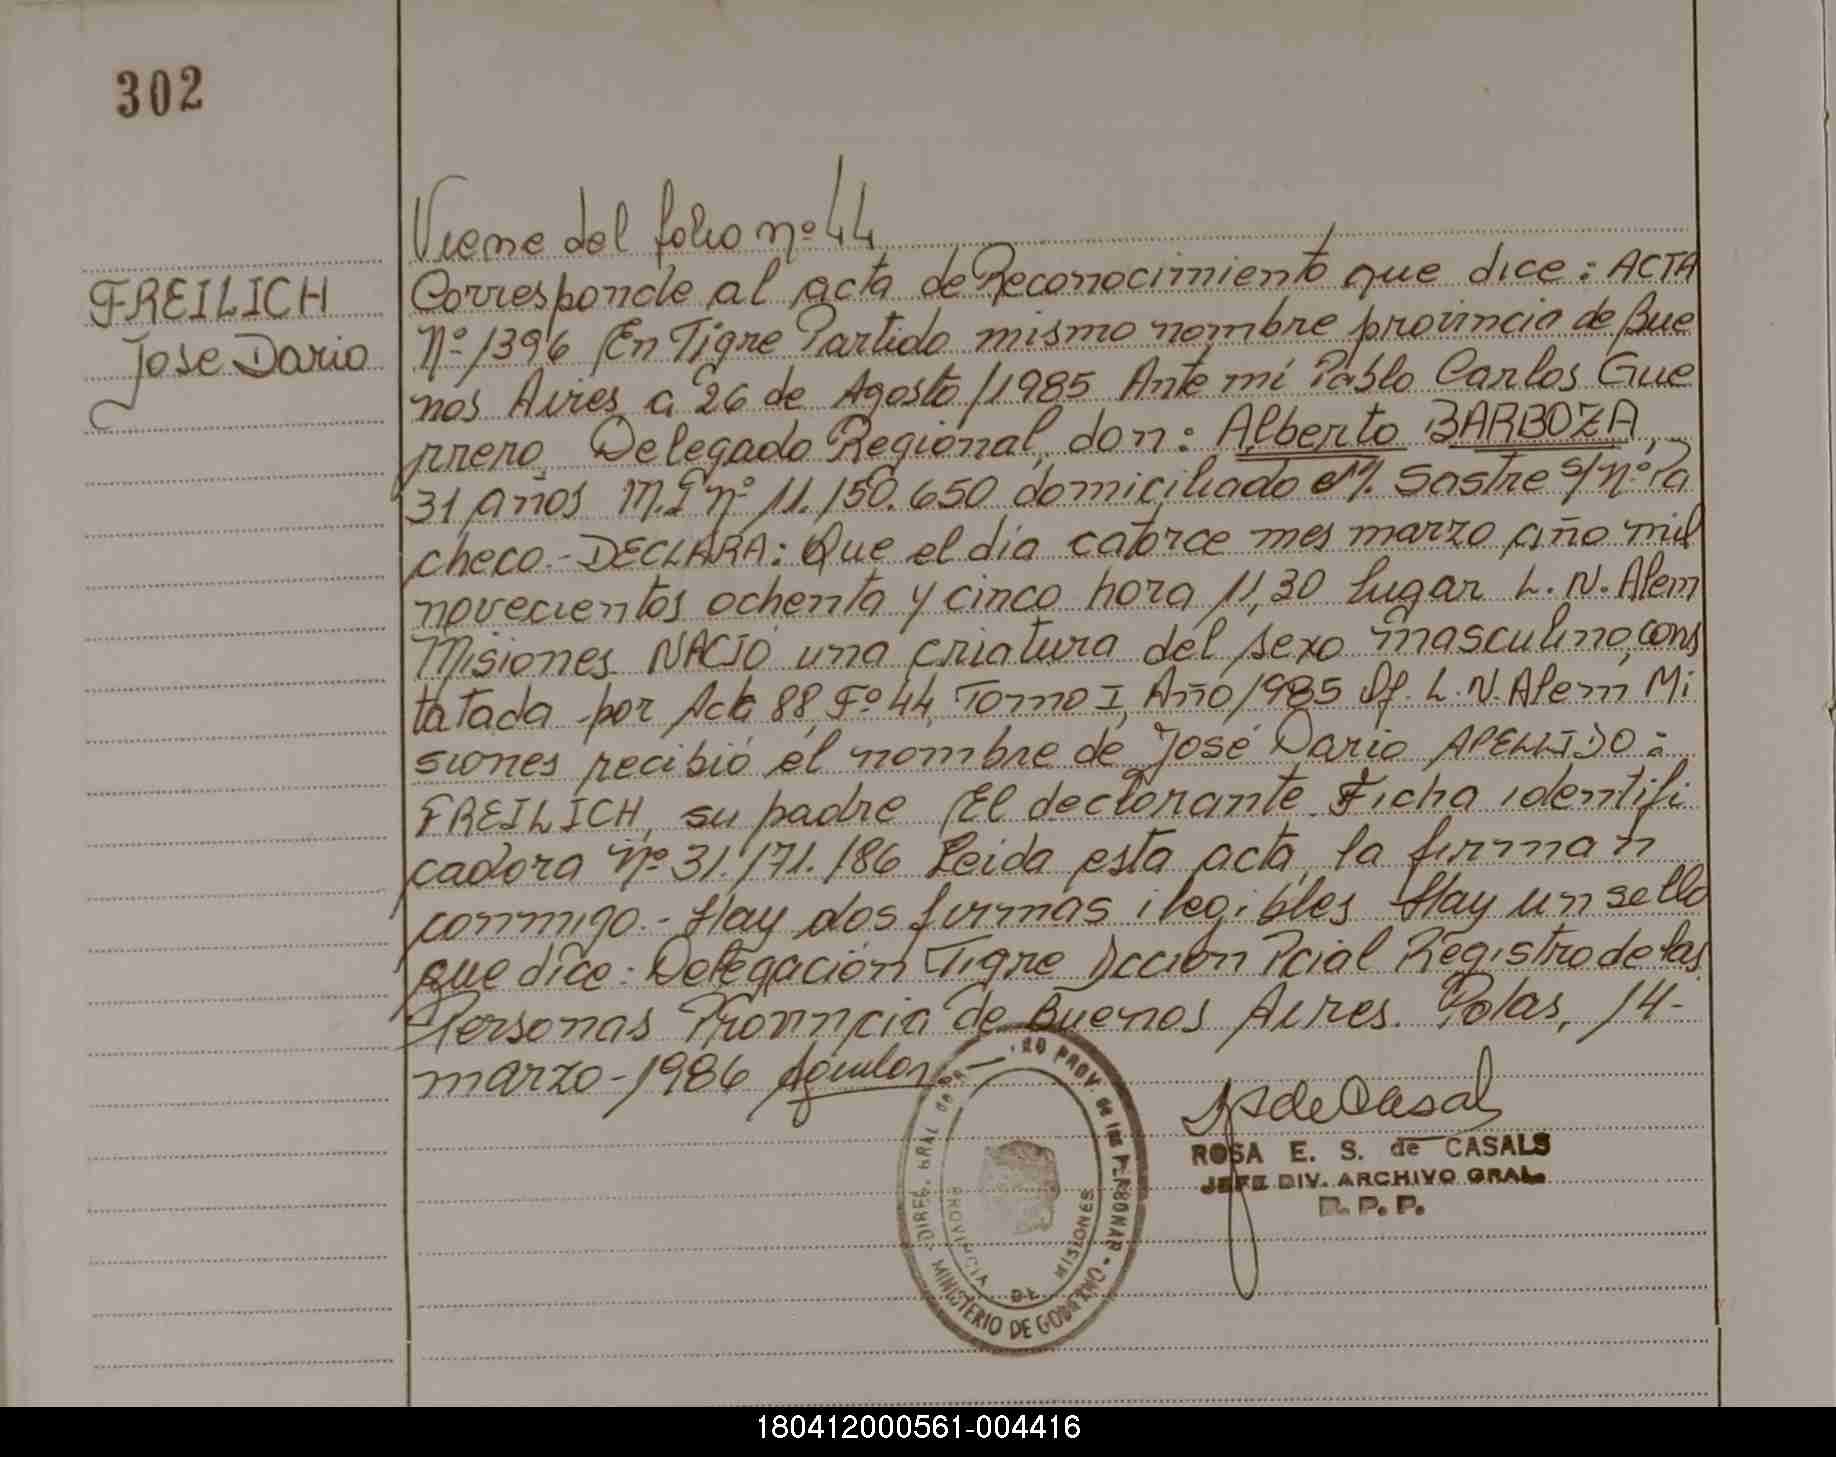 302
Viene del folio nº 44
FREILICH
Jose Dario
Corresponde al acta de Reconocimiento que dice: ACTA
Nº 1396 En Tigre Partido mismo nombre provincia de Bue
nos Aires a 26 de Agosto/1985 Ante mi Pablo Carlos Gue
rrero, Delegado Regional, don: Alberto BARBOZA,
31 años M.I nº 11.150.650 domiciliado M. Sastre s/nº Pa
checo.- DECLARA: Que el día catorce mes marzo año mil
novecientos ochenta y cinco hora 11,30 lugar L. N. Alem
Misiones NACIO una criatura del sexo masculino, cons
tatada por Acta 88, Fº 44, Tomo I, Año 1985 Df. L. N. Alem Mi
siones recibió el nombre de José Dario APELLIDO:
FREILICH, su padre El declarante. Ficha identifi
cadora nº 31.171.186 Leida esta acta, la firman
conmigo.- Hay dos firmas ilegibles Hay un sello
que dice: Delegación Tigre Dccion Pcial Registro de las
Personas Provincia de Buenos Aires. Pdas, 14-
marzo-1986
DIREC. GRAL PROV. de las PERSONAS - MINISTERIO DE GOBIERNO
PROVINCIA DE MISIONES
de Casals
ROSA E. S. de CASALS
JEFE DIV. ARCHIVO GRAL.
R. P. P.
180412000561-004416